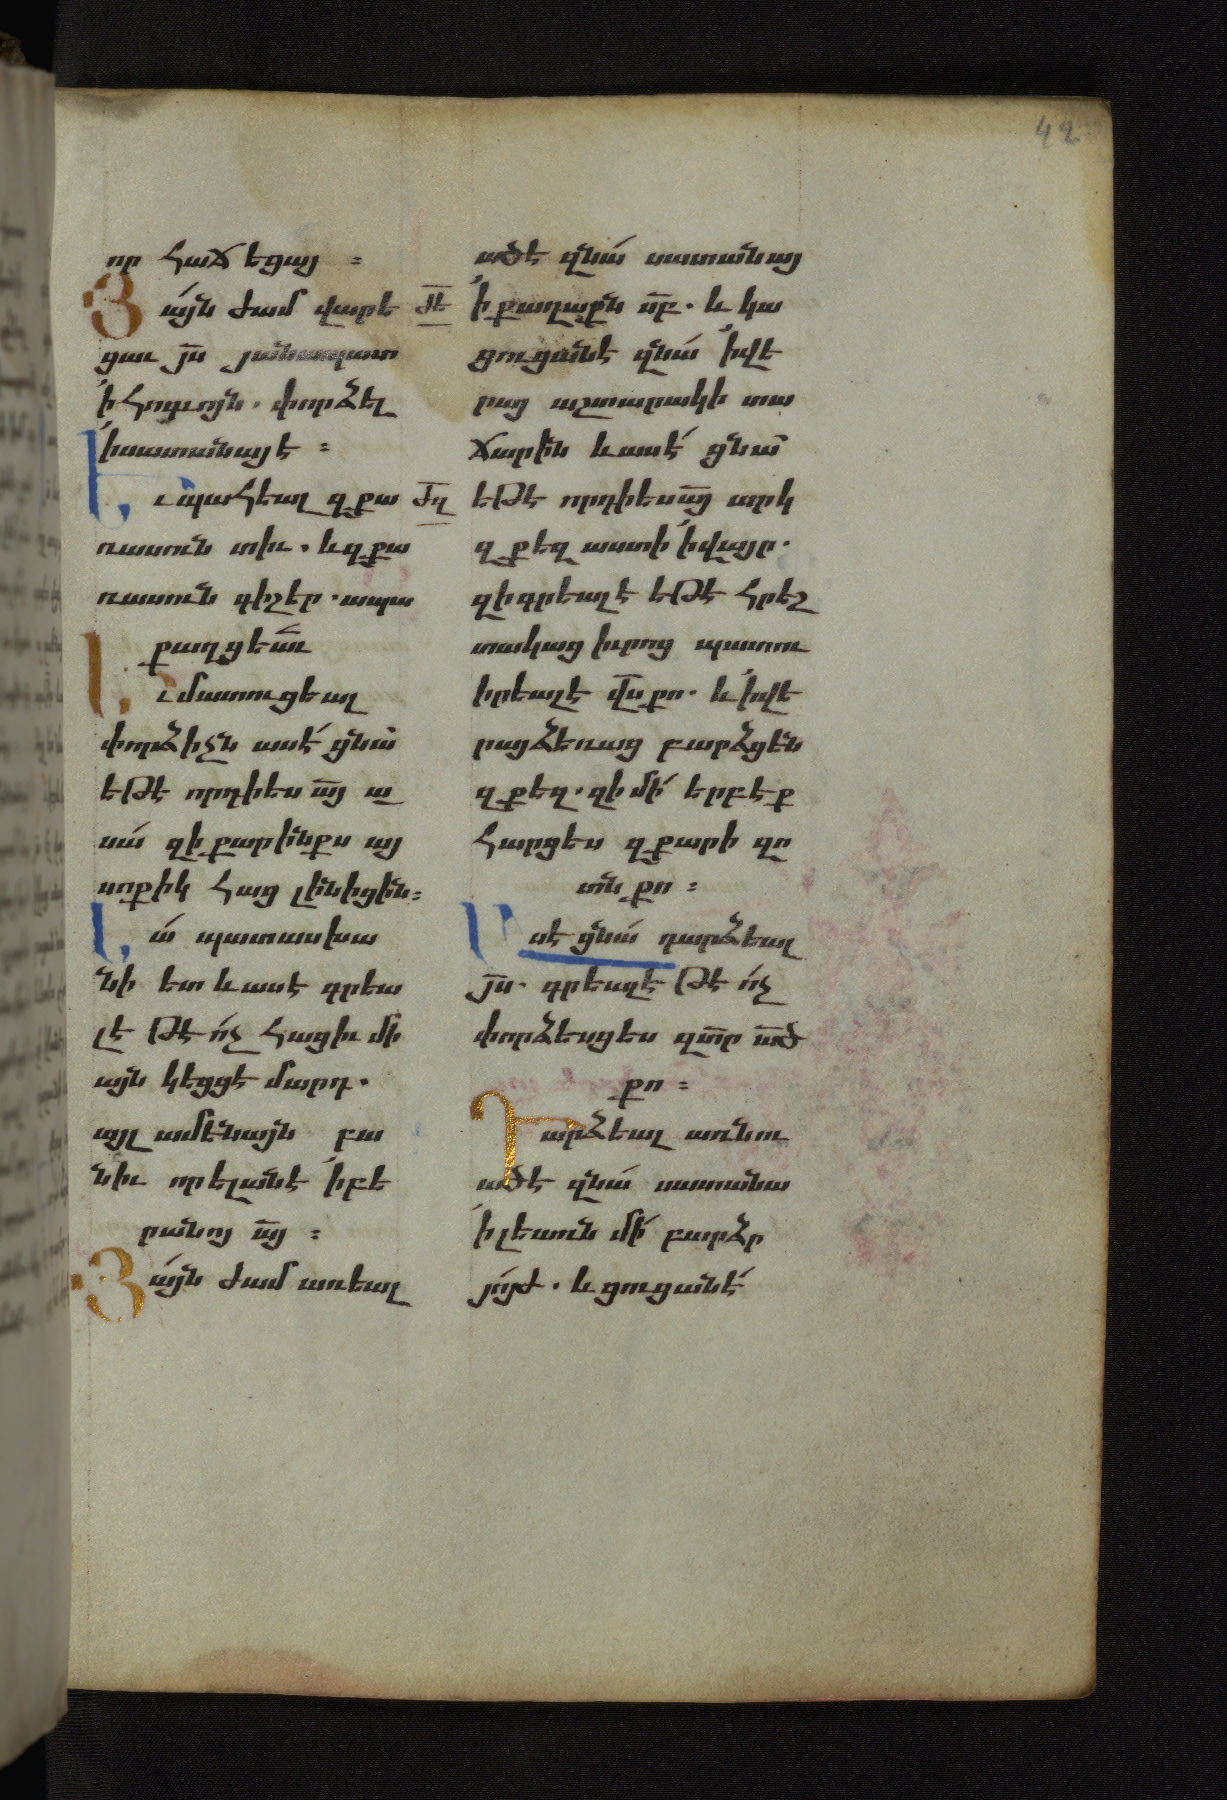 42
որ հաճեցայ ։
Յայն ժամ վարե
ցաւ յս յանապատ
ի հոգւոյն . փորձել
ի սատանայէ ։
Եւ պահեալ զքա
ռասուն տիւ . և զքա
ռասուն գիշեր . ապա
քաղցեաւ
Եւ մատուցեալ
փորձիչն ասէ ցնա
եթէ որդի ես այ ա
սա զի քարինքս այ
սոքիկ հաց լինիցին ։
Նա պատասխա
նի ետ և ասէ գրեա
լ է թէ ոչ հացիւ մի
այն կեցցէ մարդ .
այլ ամենայն բա
նիւ որ ելանէ ի բե
րանոյ այ ։
Յայն ժամ առեալ
ժե
ժզ
ածէ զնա սատանայ
ի քաղաքն սբ . և կա
ցուցանէ զնա ի վե
րայ աշտարակի տա
ճարին և ասէ ցնա
եթէ որդի ես այ արկ
զքեզ աստի ի վայր .
զի գրեալ է եթէ հրեշ
տակաց իւրոց պատու
իրեալ է վս քո . և ի վե
րայ ձեռաց բարձցեն
զքեզ . զի մի երբեք
հարցես զքարի զո
տն քո ։
Ասէ ցնա դարձեալ
յս . գրեալ է թէ ոչ
փորձեսցես զտր ած
քո ։
Դարձեալ առնու
ածէ զնա սատանա
ի լեառն մի բարձր
յոյժ . և ցուցանէ